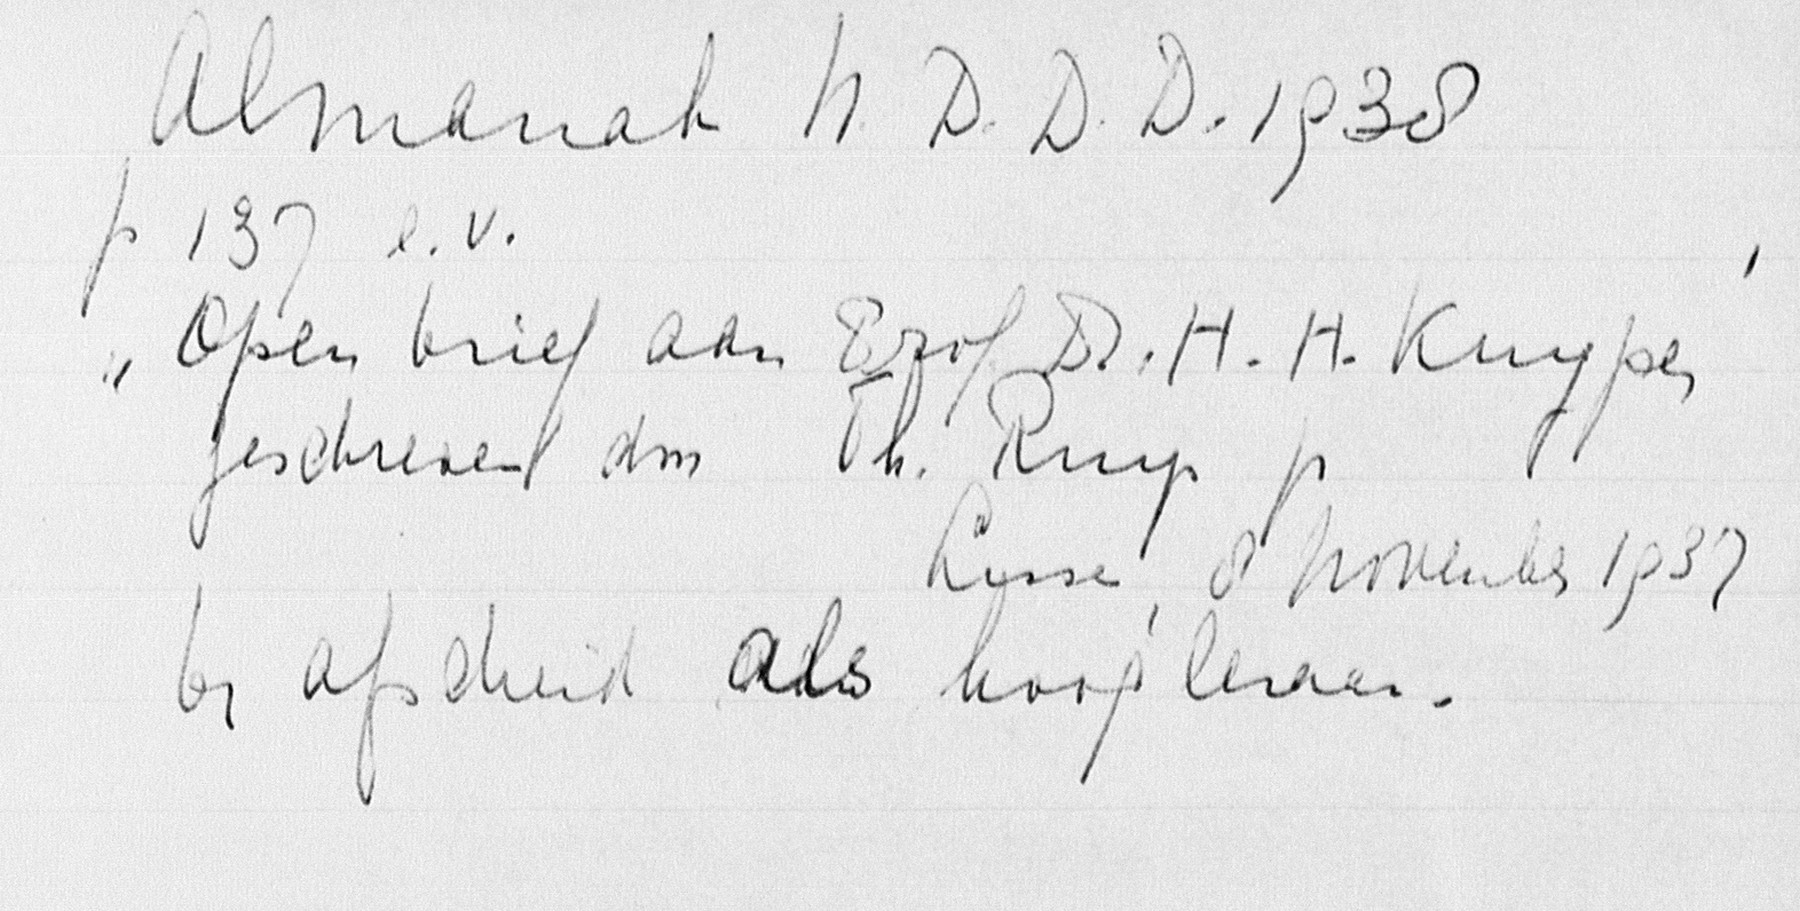 Almanak N. D. D. D. 1938
p 137 e.v.
„Open brief aan Prof. Dr. H. H. Kuyper'
geschreven door Th. Ruys Jr
Lisse, 8 November 1937
bij afscheid als hoogleraar.